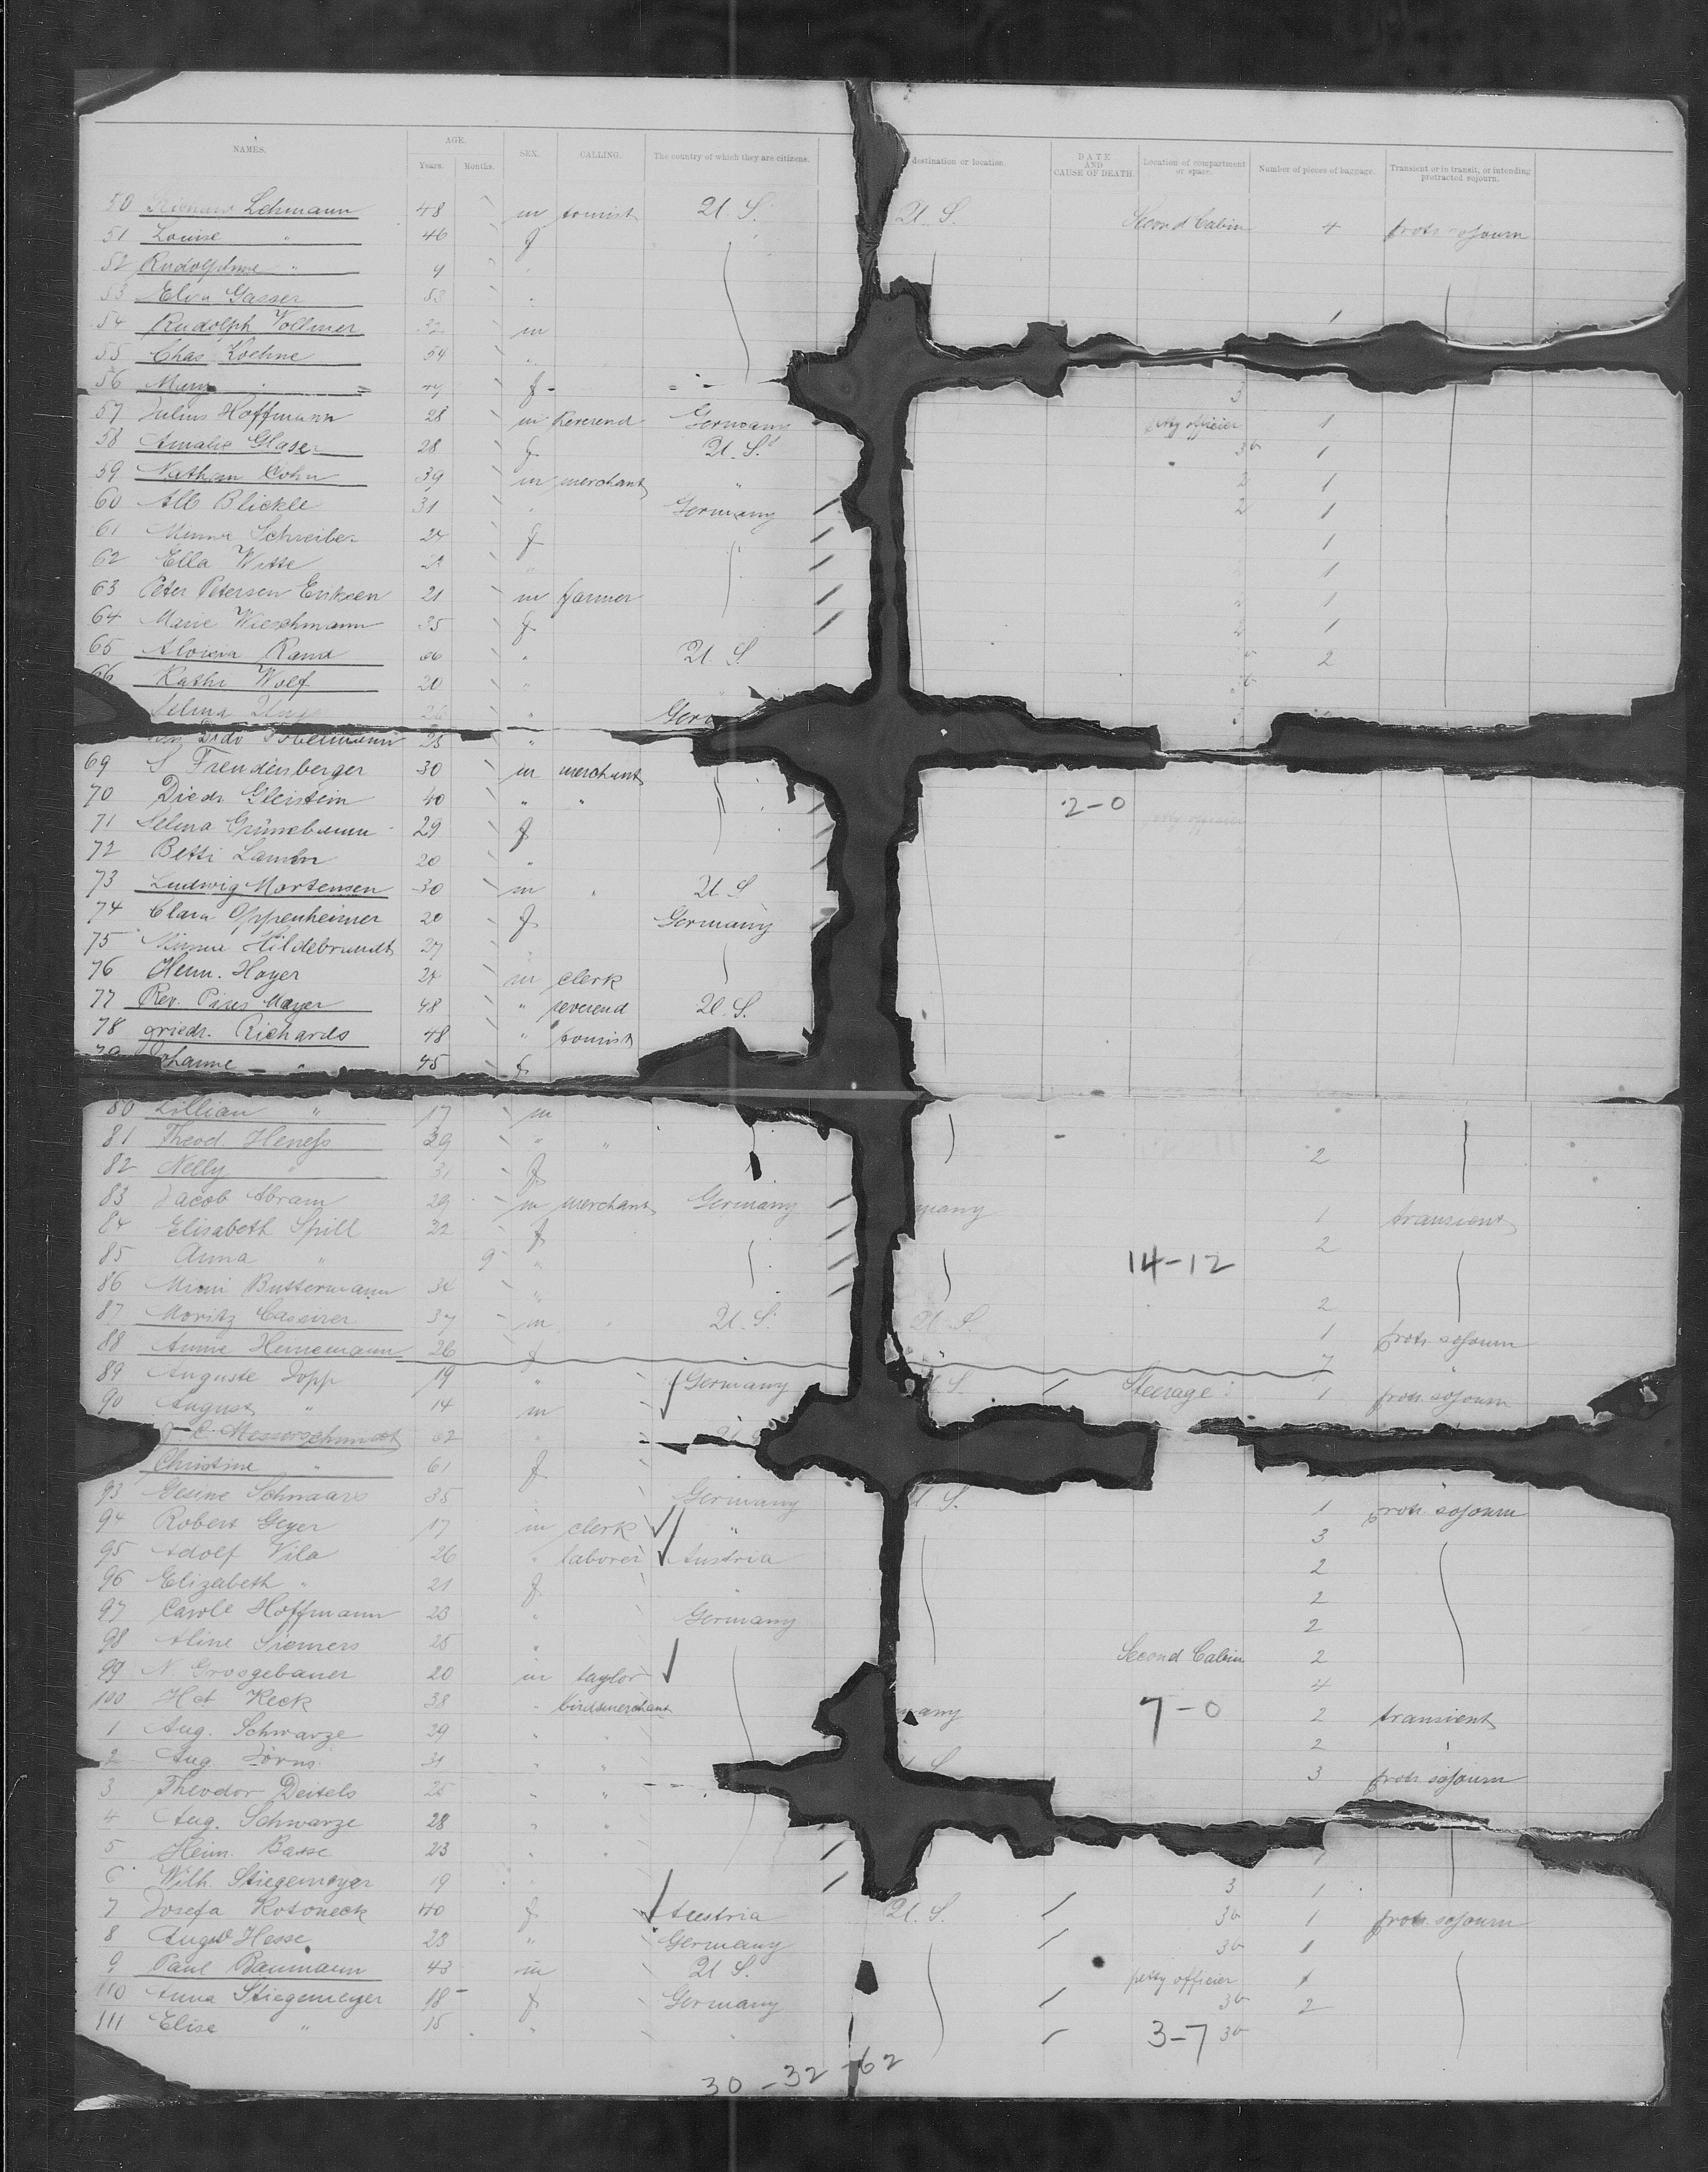 NAMES. AGE. Years. Months. SEX. CALLING. The country of which they are citizens. destination or location. DATE AND CAUSE OF DEATH. Location of compartment or space. Number of pieces of baggage. Transient or in transit, or intending protracted sojourn.
50 Lehmann 48 m tourist U. S. U. S. Second Cabin 4 protr. sojourn
51 Louise " 46 f
52 "
53 Elisa Gasser 53 "
54 Rudolph Vollmer 32 m 1
55 Chas Koehne 54 "
56 Mary " f 3
57 Julius Hoffmann 28 m Reverend Germany petty officier 1
58 Amalie Glaser 28 f U. S. 1
59 Nathan Cohn 39 m merchant " 2 1
60 Alb Blickle 31 " Germany 2 1
61 Minna Schreiber 24 f 1
62 Ella Witte " 1
63 Peter Petersen Eriksen 21 m farmer 1
64 Marie Wieschmann 35 f 1
65 Aloisia Rand 66 " U. S. 2
66 Kathi Wolf 20 "
Selma 26 " Ger
25 "
69 S Freudenberger 30 m merchant
70 Diedr. Gleistein 40 " " 2-0
71 Selma Grünebaum 29 f petty officier
72 Betti 20 "
73 Ludwig Mortensen 30 m " U. S.
74 Clara Oppenheimer 20 f Germany
75 Minna Hildebrandt 27 "
76 Heinr. Hoyer 24 m clerk
77 Rev. Pius Mayer 48 " reverend U. S.
78 Friedr. Richards 48 " tourist
79 Johanne " 45 f
80 Lillian " 17 m
81 Theod. Heness 39 " "
82 Nelly " 31 f 2
83 Jacob Abram 29 m merchant Germany many 1 transient
84 Elisabeth Spill 32 f 2
85 Anna " 9 " 14-12
86 Mimi Buttermann 34 " 2
87 Moritz Cassirer 37 m " U. S. U. S. 1 protr. sojourn
88 Anna Heinemann 26 f 7 "
89 Auguste Jopp 19 " Germany S. Steerage: 1 protr. sojourn
90 August " 14 m
Messerschmidt 62 "
Christine " 61 f
93 Gesine Schnaars 35 " Germany U S. 1 protr. sojourn
94 Robert Geyer 17 m clerk " 3
95 Adolf Vila 26 " laborer Austria 2
96 Elizabeth " 21 f " 2
97 Carole Hoffmann 23 " Germany 2
98 Aline Siemers 25 " Second Cabin 2
99 N. Grosgebauer 20 m taylor 4
100 Keck 38 " birdsmerchant many 7-0 2 transient
1 Aug. Schwarze 39 " " 2 "
2 Aug. 31 " " S 3 protr. sojourn
3 Theodor Deitels 25 " "
4 Aug. Schwarze 28 " "
5 Heinr. Basse 23 " " 1
6 Wilh. Stiegemeyer 19 " 3 1
7 Josefa Kotoneck 40 f Austria U. S. 1 protr. sojourn
8 August Hesse 23 " Germany 1
9 Paul Baumann 43 m U S. petty officier 1
110 Anna Stiegemeyer 18 f Germany 2
111 Elise " 15 " " 3-7
30-32-62